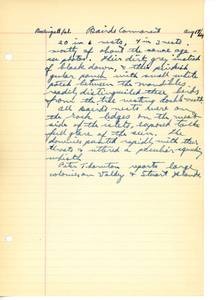 Baird's Cormorant
20 in 6 nests, 4 in 3 nests,
mostly of about the same age
see photos. Their dirty gray instead
of black down, & the pinkish
gular pouch with small white
patch between the mandible
readily distinguished these birds
from the
All Baird's nests were on
the rock ledges on the west
side of the islets, exposed to the
full glare of the sun. The
downies panted rapidly with their
throats & uttered a peculiar squeaky
reports large
colonies on Valdez & Stuart Islands